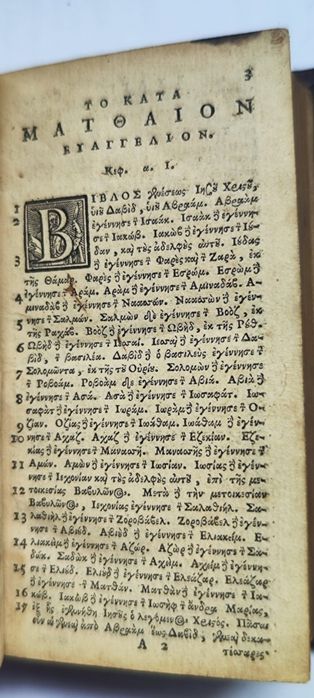 3
ΤΟ ΚΑΤΑ
ΜΑΤΘΑΙΟΝ
ΕΥΑΓΓΕΛΙΟΝ.
Κεφ. α. I.
ΒΙΒΛΟΣ γενέσεως Ἰησοῦ Χριστοῦ,
2 υἱοῦ Δαβὶδ, υἱοῦ Ἀβραάμ. Ἀβραὰμ
ἐγέννησε τ Ἰσαάκ. Ἰσαὰκ ἢ ἐγέννη-
σε τ Ἰακώβ. Ἰακὼβ ἢ ἐγέννησε τ Ἰού-
3 δαν, καὶ τοὺς ἀδελφοὺς αὐτοῦ. Ἰούδας
ἢ ἐγέννησε τ Φαρὲς καὶ τ Ζαρὰ, ἐκ
τῆς Θάμαρ. Φαρὲς ἢ ἐγέννησε τ Ἐσρώμ. Ἐσρὼμ ἢ
4 ἐγέννησε τ Ἀράμ. Ἀρὰμ ἢ ἐγέννησε τ Ἀμιναδάβ. Ἀ-
μιναδὰβ ἢ ἐγέννησε τ Ναασσών. Ναασσὼν ἢ ἐγέν-
5 νησε τ Σαλμών. Σαλμὼν δὲ ἐγέννησε τ Βοὸζ, ἐκ
τῆς Ῥαχάβ. Βοὸζ ἢ ἐγέννησε τ Ὠβὴδ, ἐκ τῆς Ῥούθ.
6 Ὠβὴδ ἢ ἐγέννησε τ Ἰεσσαί. Ἰεσσαὶ ἢ ἐγέννησε τ Δα-
βὶδ, τ βασιλέα. Δαβὶδ ἢ ὁ βασιλεὺς ἐγέννησε τ
7 Σολομῶντα, ἐκ τῆς τοῦ Οὐρίου. Σολομὼν ἢ ἐγέννησε
τ Ῥοβοάμ. Ῥοβοὰμ δὲ ἐγέννησε τ Ἀβιά. Ἀβιὰ ἢ
8 ἐγέννησε τ Ἀσά. Ἀσὰ ἢ ἐγέννησε τ Ἰωσαφάτ. Ἰω-
σαφὰτ ἢ ἐγέννησε τ Ἰωράμ. Ἰωρὰμ ἢ ἐγέννησε τ Ὀ-
9 ζίαν. Ὀζίας ἢ ἐγέννησε τ Ἰωάθαμ. Ἰωάθαμ ἢ ἐγέν-
10 νησε τ Ἄχαζ. Ἄχαζ ἢ ἐγέννησε τ Ἐζεκίαν. Ἐζε-
κίας ἢ ἐγέννησε τ Μανασσῆ. Μανασσῆς ἢ ἐγέννησε τ
11 Ἀμών. Ἀμὼν ἢ ἐγέννησε τ Ἰωσίαν. Ἰωσίας ἢ ἐγέννη-
σε τ Ἰεχονίαν καὶ τοὺς ἀδελφοὺς αὐτοῦ, ἐπὶ τῆς με-
12 τοικεσίας Βαβυλῶνος. Μετὰ ἢ τὴν μετοικεσίαν
Βαβυλῶνος, Ἰεχονίας ἐγέννησε τ Σαλαθιήλ. Σα-
13 λαθιὴλ ἢ ἐγέννησε τ Ζοροβάβελ. Ζοροβάβελ ἢ ἐγέν-
νησε τ Ἀβιούδ. Ἀβιοὺδ ἢ ἐγέννησε τ Ἐλιακείμ. Ἐ-
14 λιακεὶμ ἢ ἐγέννησε τ Ἀζώρ. Ἀζὼρ ἢ ἐγέννησε τ Σα-
δώκ. Σαδὼκ ἢ ἐγέννησε τ Ἀχείμ. Ἀχεὶμ ἢ ἐγέννη-
15 σε τ Ἐλιούδ. Ἐλιοὺδ ἢ ἐγέννησε τ Ἐλεάζαρ. Ἐλεάζαρ
ἢ ἐγέννησε τ Ματθάν. Ματθὰν ἢ ἐγέννησε τ Ἰα-
16 κώβ. Ἰακὼβ ἢ ἐγέννησε τ Ἰωσὴφ τ ἄνδρα Μαρίας,
17 ἐξ ἧς ἐγεννήθη Ἰησοῦς ὁ λεγόμενος Χριστός. Πᾶσαι
οὖν αἱ γενεαὶ ἀπὸ Ἀβραὰμ ἕως Δαβὶδ, γενεαὶ δεκα-
A 2 τέσσαρες·